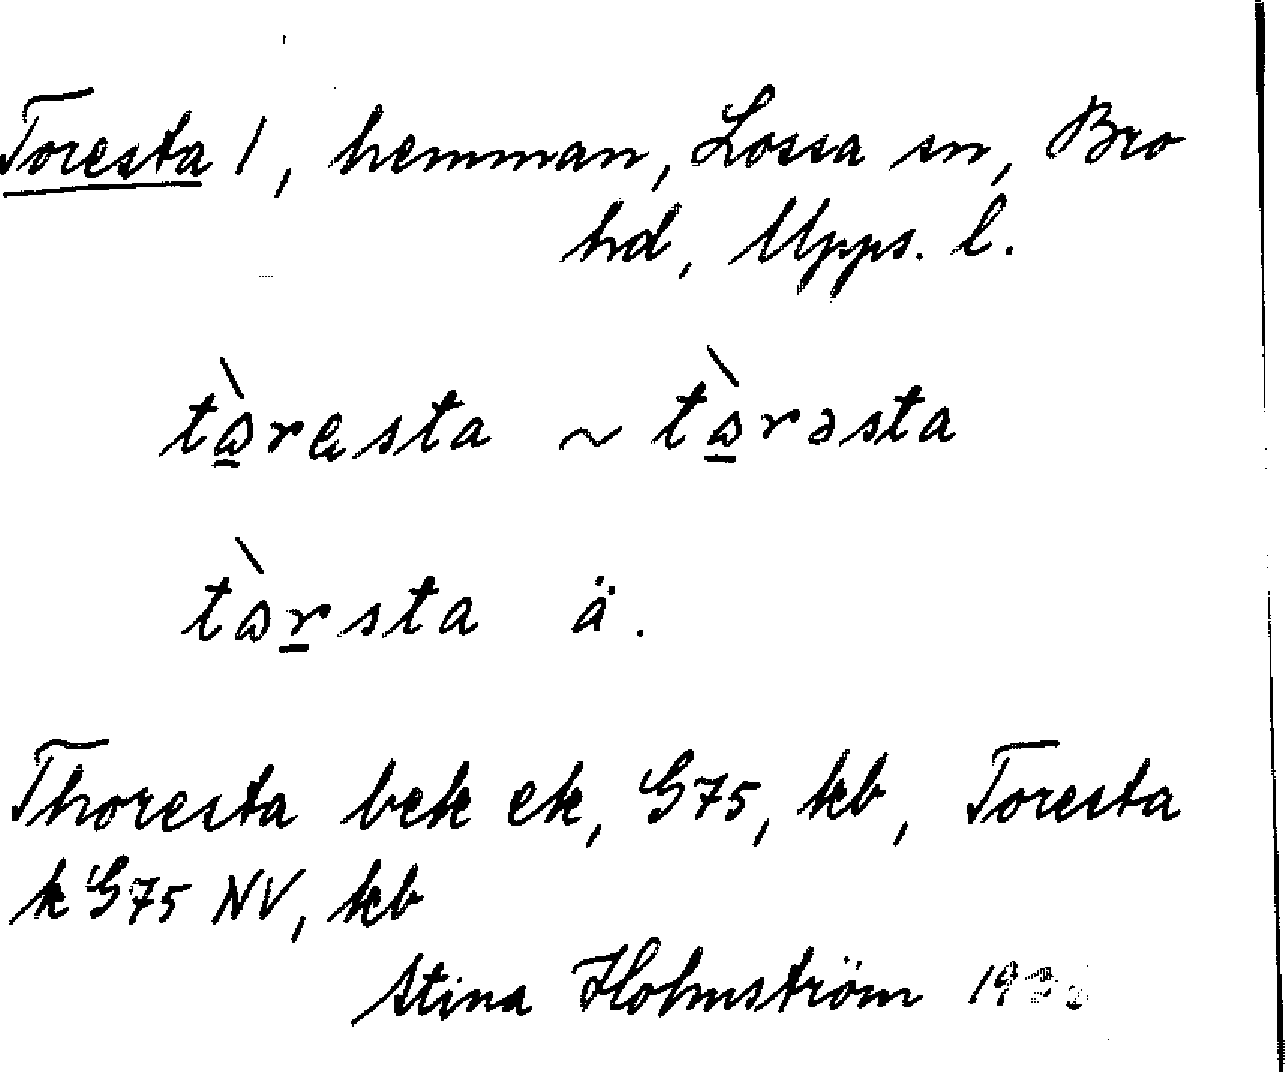 Toresta 1, hemman, Lossa sn, Bro
hd, Upps. l.
tò̱resta ~ tò̱rəsta
tòṟsta ä.
Thoresta bek ek, G75, kb, Toresta
k G75 NV, kb
Stina Holmström